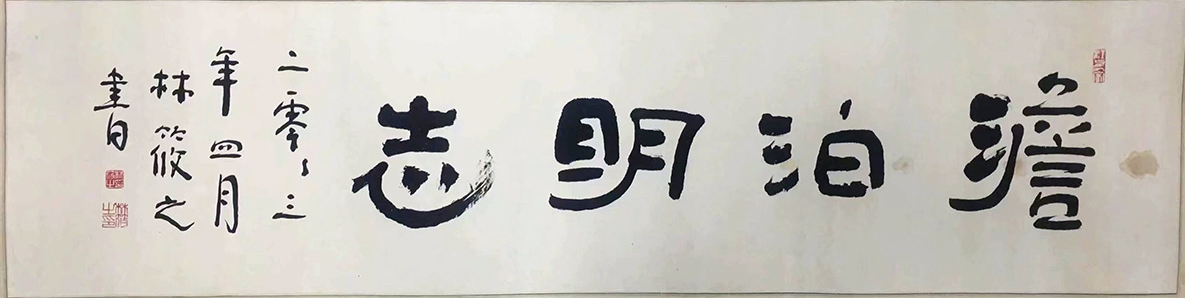 澹泊明志
二零々三
年四月
林筱之
書